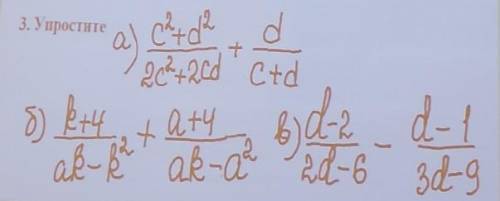 3. Упростите а) (c²+d²)/(2c²+2cd) + d/(c+d)
б) (k+4)/(ak-k²) + (a+4)/(ak-a²) в) (d-2)/(2d-6) - (d-1)/(3d-9)